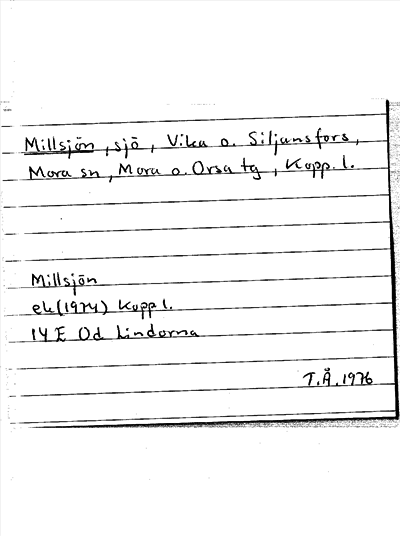 Millsjön, sjö, Vika o. Siljansfors,
Mora sn, Mora o. Orsa tg, Kopp. l.
Millsjön
ek (1974) Kopp l.
14 E Od Lindorna
T.Å. 1976